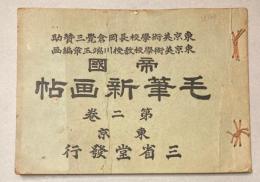 東京美術學校長岡倉覺三賛助
東京美術學校教授川端玉章編画
帝國
毛筆新画帖
第二卷
東京
三省堂發行